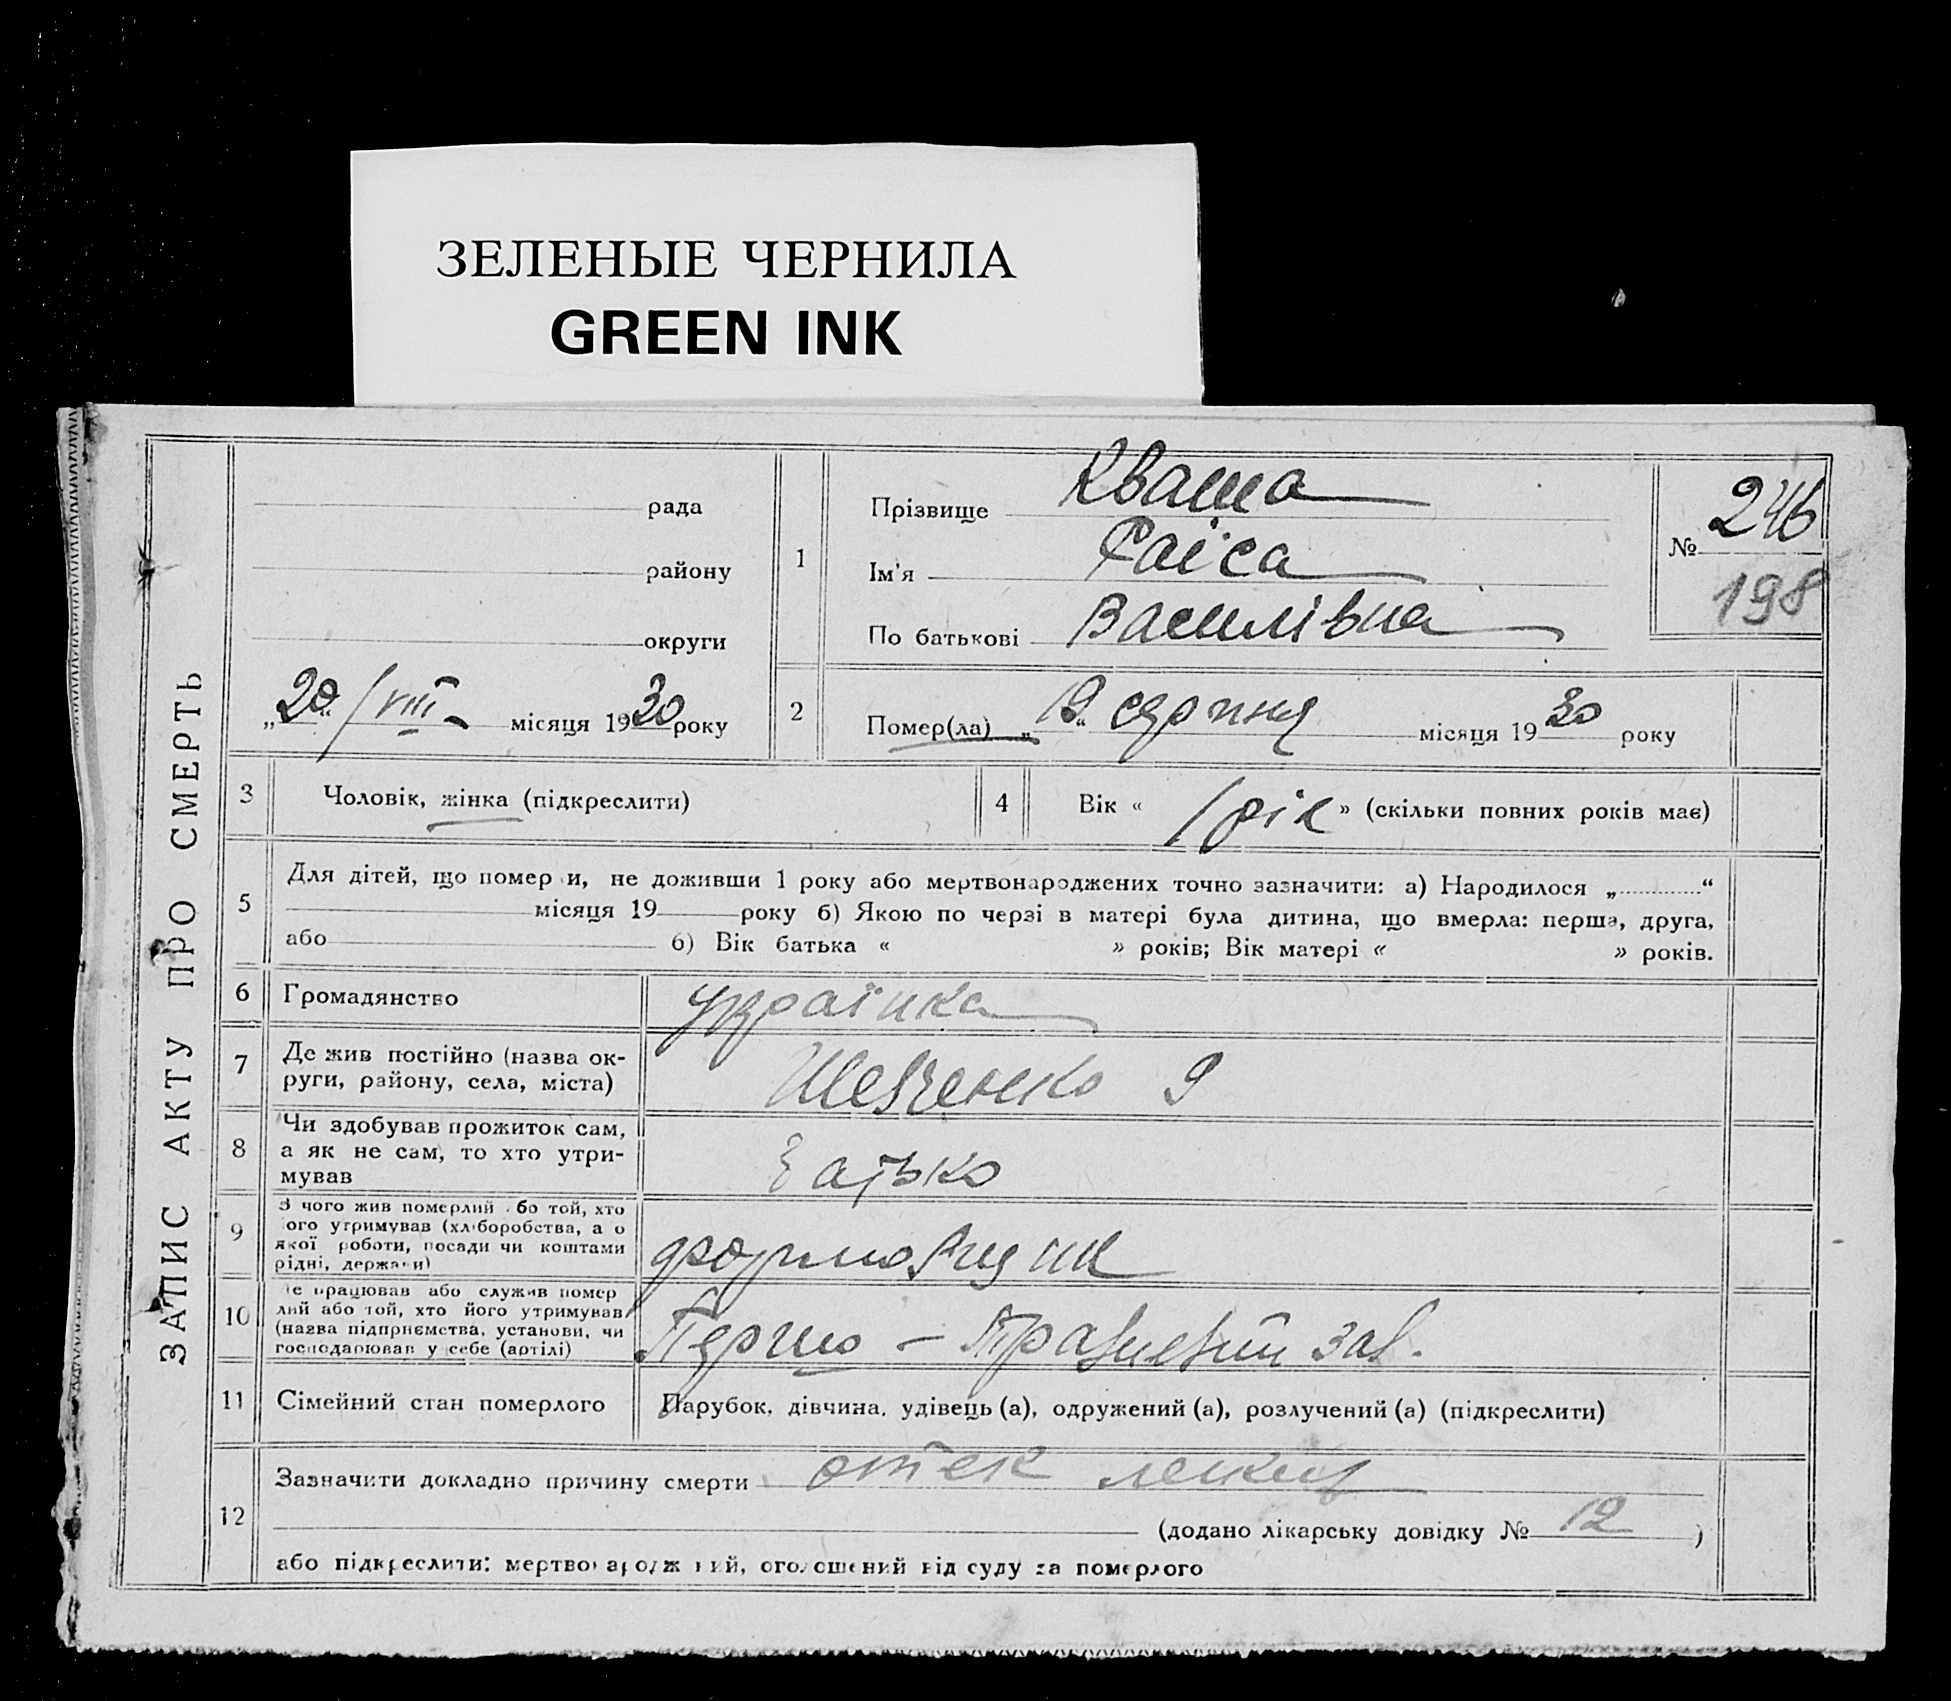 ЗЕЛЕНЫЕ ЧЕРНИЛА
GREEN INK
ЗАПИС АКТУ ПРО СМЕРТЬ
рада
району
округи
„20“ /VIII- місяця 1930 року
1
Прізвище Кваша
Ім'я Раїса
По батькові Василівна
№ 246
198
2
Помер(ла) „19“ серпня місяця 1930 року
3
Чоловік, жінка (підкреслити)
4
Вік « 1 рік » (скільки повних років має)
5
Для дітей, що померли, не доживши 1 року або мертвонароджених точно зазначити: а) Народилося „ “
місяця 19 року б) Якою по черзі в матері була дитина, що вмерла: перша, друга,
або б) Вік батька « » років; Вік матері « » років.
6
Громадянство
українка
7
Де жив постійно (назва ок-
руги, району, села, міста)
Шевченко 9
8
Чи здобував прожиток сам,
а як не сам, то хто утри-
мував
батько
9
З чого жив померлий або той, хто
його утримував (хліборобства, а о
якої роботи, посади чи коштами
рідні, держави)
формовщик
10
Де працював або служив помер
лий або той, хто його утримував
(назва підприємства, установи, чи
господарював у себе (артілі)
Першо - Травневий зав.
11
Сімейний стан померлого
Парубок, дівчина, удівець (а), одружений (а), розлучений (а) (підкреслити)
12
Зазначити докладно причину смерти отек
(додано лікарську довідку № 12 )
або підкреслити: мертвонароджений, оголошений від суду за померлого